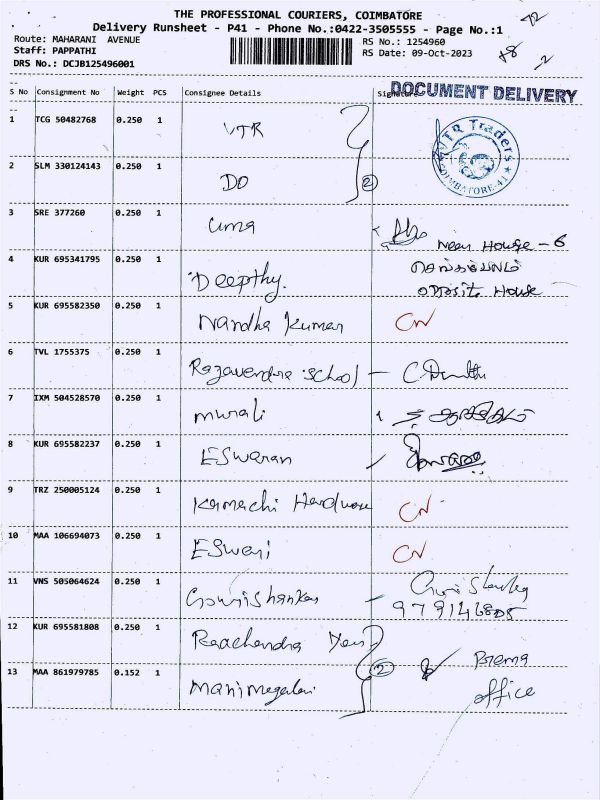 THE PROFESSIONAL COURIERS, COIMBATORE
Delivery Runsheet - P41 - Phone No.:0422-3505555 - Page No.:1
Route: MAHARANI AVENUE
RS No.: 1254960
Staff: PAPPATHI
RS Date: 09-Oct-2023
DRS No.: DCJB125496001
S No Consignment No Weight PCS Consignee Details Signature
DOCUMENT DELIVERY
1 TCG 50482768 0.250 1 VTR
VTR Traders COIMBATORE-41
2 SLM 330124143 0.250 1 DO 2
3 SRE 377260 0.250 1 Uma
Near House - 6
4 KUR 695341795 0.250 1 Deepthy.
opposite House
5 KUR 695582350 0.250 1 Nandha Kumar CN
6 TVL 1755375 0.250 1 Ragavendra school -
7 IXM 504528570 0.250 1 murali
8 KUR 695582237 0.250 1 ESwaran
9 TRZ 250005124 0.250 1 Kamachi Hardware CN
10 MAA 106694073 0.250 1 ESwari CN
11 VNS 505064624 0.250 1 GowriShankar
12 KUR 695581808 0.250 1
Prema
13 MAA 861979785 0.152 1 Manimegalai 2
office